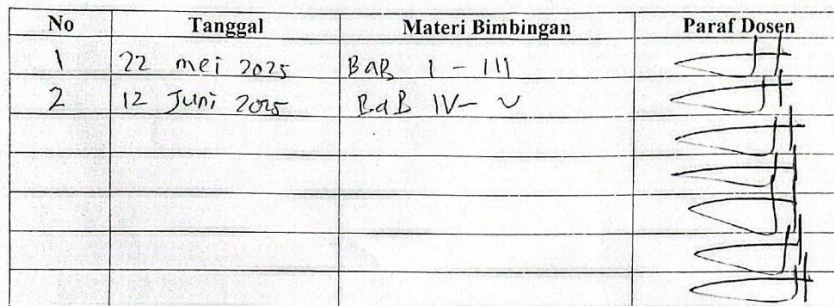 No Tanggal Materi Bimbingan Paraf Dosen
1 22 mei 2025 BaB I - III
2 12 Juni 2025 BaB IV - V